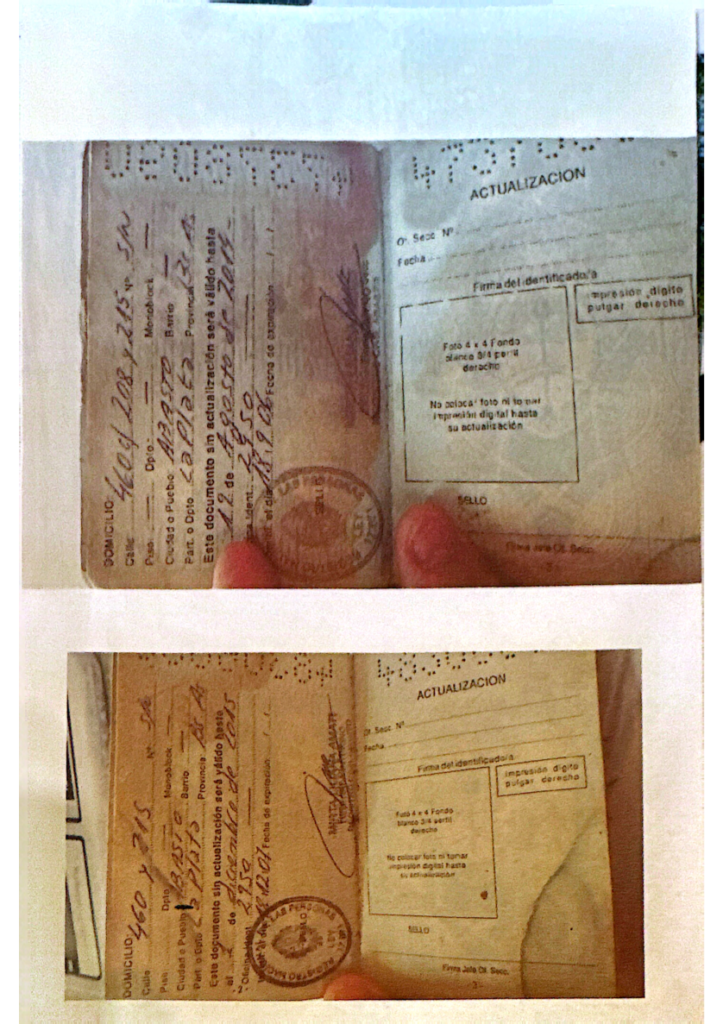 DOMICILIO:
Calle 460 e/ 208 y 215 Nº S/N
Piso — Dpto. — Monoblock —
Ciudad o Pueblo ABASTO Barrio —
Part. o Dpto La Plata Provincia Bs As
Este documento sin actualización será válido hasta
el 12 de Agosto de 2014
Ident. 2950
el día 18.9.06 Fecha de expiración / /
LAS PERSONAS
SELLO
ACTUALIZACION
Of. Secc. Nº
Fecha
Firma del identificado/a
impresión dígito
pulgar derecho
Foto 4 x 4 Fondo
blanco 3/4 perfil
derecho
No colocar foto ni tomar
impresión digital hasta
su actualización
SELLO
Firma Jefe Of. Secc.
- 3 -
DOMICILIO:
Calle 460 y 215 Nº S/N
Piso Dpto — Monoblock —
Ciudad o Pueblo ABASTO Barrio —
Part. o Dpto La Plata Provincia Bs As
Este documento sin actualización será válido hasta
el de diciembre de 2015
Oficina Ident. 2950
Fecha de expiración / /
- 2 -
LAS PERSONAS
ACTUALIZACION
Of. Secc. Nº
Fecha
Firma del identificado/a
impresión dígito
pulgar derecho
Foto 4 x 4 Fondo
blanco 3/4 perfil
derecho
No colocar foto ni tomar
impresión digital hasta
su actualización
SELLO
Firma Jefe Of. Secc.
- 3 -